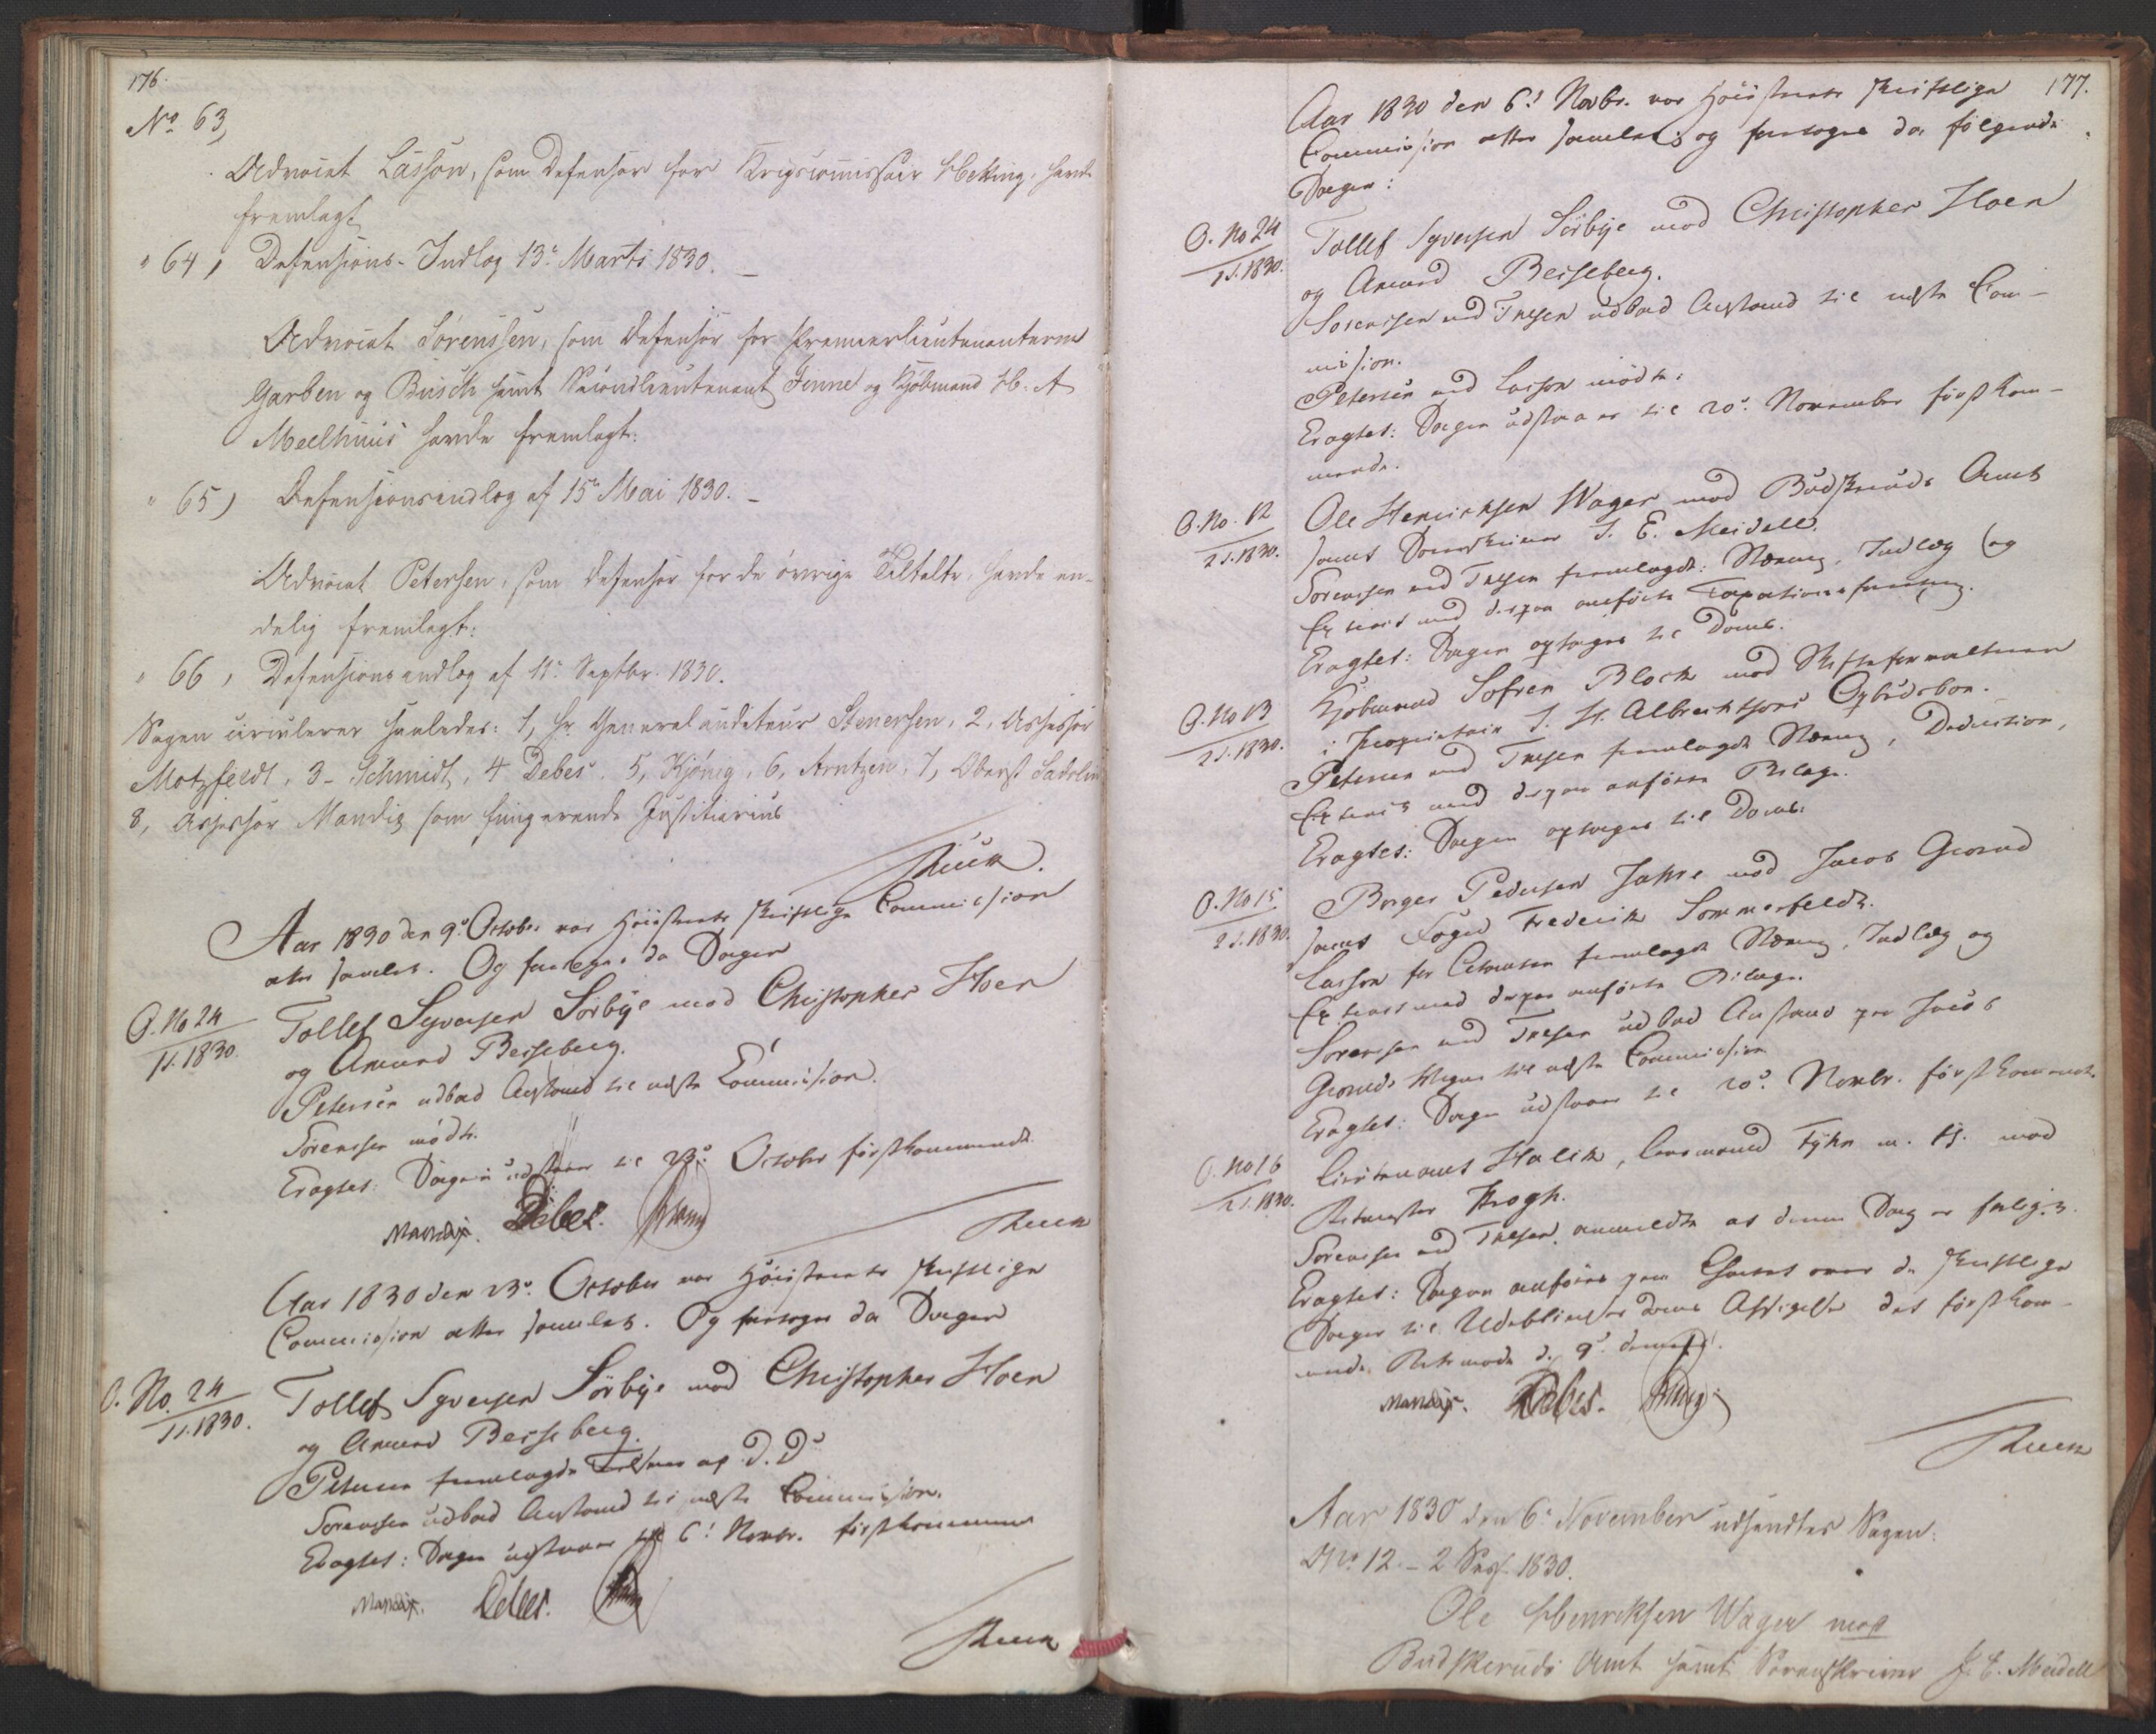 176.
No 63,
Advocat Lasson, som Defensor for Krigscommissair Heking, havde
fremlagt
" 64, Defensions-Indlæg 13de Marts 1830. –
Advocat Sörenssen, som Defensor for Premierlieutenanterne
Garben og Busch samt Secondlieutenant Finne og Kjöbmand H. A
Meelhuus havde fremlagt:
" 65) Defensionsindlæg af 15de Mai 1830. –
Advocat Petersen, som Defensor for de övrige Tiltalte, havde en-
delig fremlagt:
" 66, Defensionsindlæg af 11te Septbr. 1830.
Sagen circulerer saaledes: 1, Hr. Generalauditeur Stenersen, 2, Assessor
Motzfeldt, 3 – Schmidt, 4 Debes. 5, Kjönig, 6, Arntzen, 7, Oberst
8, Assessor Mandix som fungerende Justitiarius
Aar 1830 den 9de October var Höiesterets skriftlige Commission
atter samlet. Og foretoges da Sagen
O. No 24
1 S. 1830.
Tollef Syversen Sörbye mod Christopher Hoen
og Amund Beisseberg.
Petersen udbad Anstand til næste Commission.
Sörenssen mödte.
Eragtet: Sagen udstaaer til 23de October förstkommende.
Mandix. Debes.
Aar 1830 den 23de October var Höiesterets skriftlige
Commission atter samlet. Og foretoges da Sagen
O. No. 24
1 S. 1830.
Tollef Syversen Sörbye mod Christopher Hoen
og Amund Beisseberg.
Petersen fremlagde af D. D.
Sörenssen udbad Anstand til næste Commission.
Eragtet: Sagen udstaaer til 6te Novbr. förstkommende
Mandix. Debes.
177.
Aar 1830 den 6te Novbr. var Höiesterets skriftlige
Commission atter samlet; og foretoges da fölgende
Sager:
O. No 24
1 S. 1830.
Tollef Syversen Sörbye mod Christopher Hoen
og Amund Beisseberg.
Sörenssen ved Thesen udbad Anstand til næste Com-
mission.
Petersen ved Lasson mödte.
Eragtet: Sagen udstaaer til 20de November förstkom-
mende.
O. No. 12
2 S. 1830.
Ole Henrichsen Wager mod Budskeruds Amt
samt Sorenskriver J. E. Meidell.
Sörenssen ved Thesen fremlagde: Stævning, Indlæg og
Extract med derpaa anförte Taxationsforretning.
Eragtet: Sagen optages til Doms.
O. No 13
2 S. 1830.
Kjöbmand Sofren Block mod Skifteforvalteren
i Proprietair J. H. Albrechtsons Opbudsbo.
Petersen ved Thesen fremlagde Stævning, Deduction,
Extract med derpaa anförte Bilage.
Eragtet: Sagen optages til Doms.
O. No 15
2 S. 1830.
Börger Pedersen Jahre mod Jacob Gjerud
samt Foged Frederik Sommerfeldt.
Lasson for Citanten fremlagde Stævning, Indlæg og
Extract med derpaa anförte Bilage.
Sörenssen ved Thesen udbad Anstand paa Jacob
Gjeruds Vegne til næste Commission
Eragtet: Sagen udstaaer til 20de Novbr. förstkommende.
O. No 16
2 S. 1830.
Lieutenant Halck, Leensmand Fyhn m. fl. mod
Ritmester Krogh.
Sörenssen ved Thesen anmeldte at denne Sag er forligt.
Eragtet: Sagen anföres paa Listen over de skriftlige
Sager til Udeblivelsesdoms Afsigelse det förstkom-
mende Retsmöde d. 9de dennes.
Mandix. Debes.
Aar 1830 den 6te November udsendtes Sagen:
No 12 – 2 Sess. 1830.
Ole Henriksen Wager mod
Budskeruds Amt samt Sorenskriver J. E. Meidell